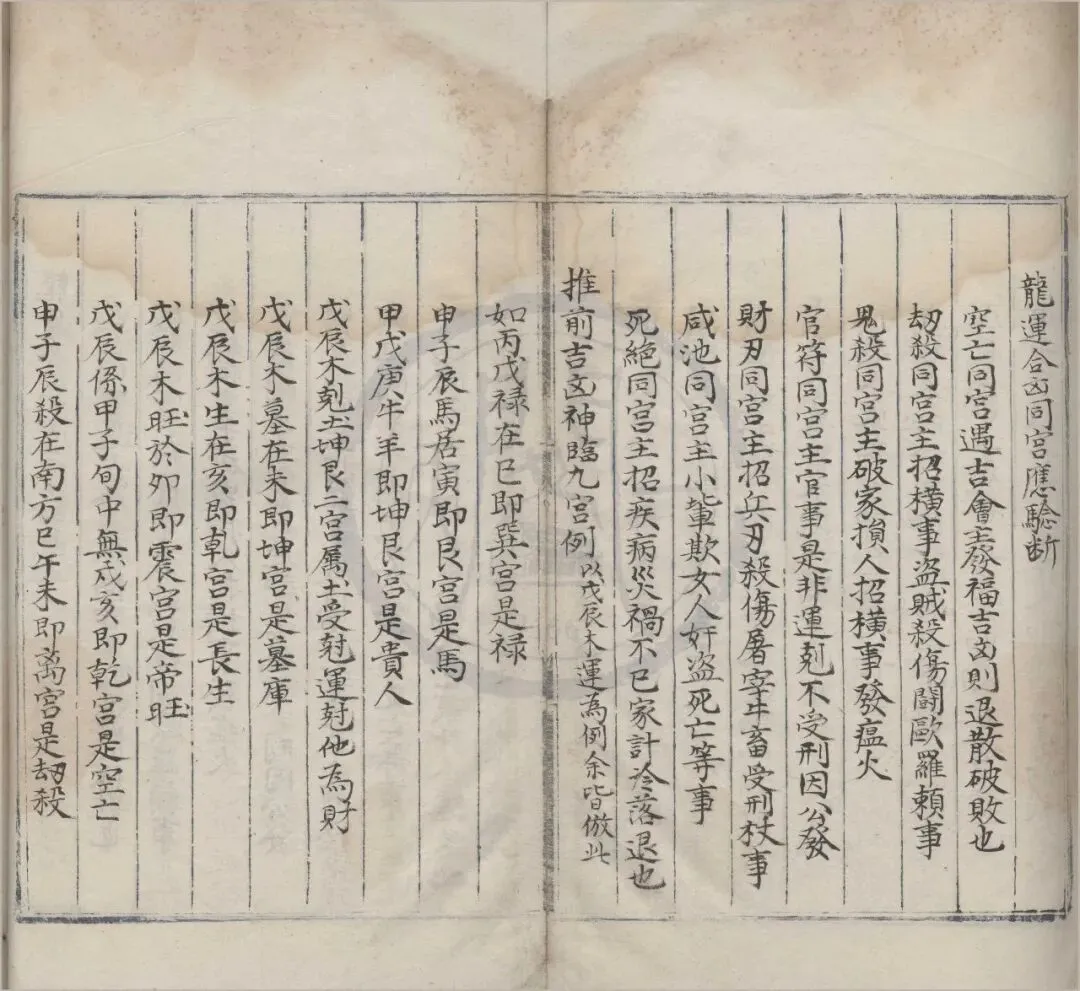 龍運合凶同宮應驗断
空亡同宮遇吉會主發福吉凶則退散破敗也
刼殺同宮主招橫事盜賊殺傷鬪歐羅賴事
鬼殺同宮主破家損人招橫事發瘟火
官符同宮主官事是非運剋不受刑因公發
財刃同宮主招兵刃殺傷屠宰牛畜受刑杖事
咸池同宮主小輩欺女人奸盜死亡等事
死絕同宮主招疾病災禍不已家計冷落退也
推前吉凶神臨九宮例以戊辰木運為例余皆倣此
如丙戊禄在巳即巽宮是禄
申子辰馬居寅即艮宮是馬
甲戊庚牛羊即坤艮宮是貴人
戊辰木剋土坤艮二宮属土受尅運尅他為財
戊辰木墓在未即坤宮是墓庫
戊辰木生在亥即乹宮是長生
戊辰木旺於卯即震宮是帝旺
戊辰係甲子旬中無戌亥即乾宮是空亡
申子辰殺在南方巳午未即离宮是刼殺